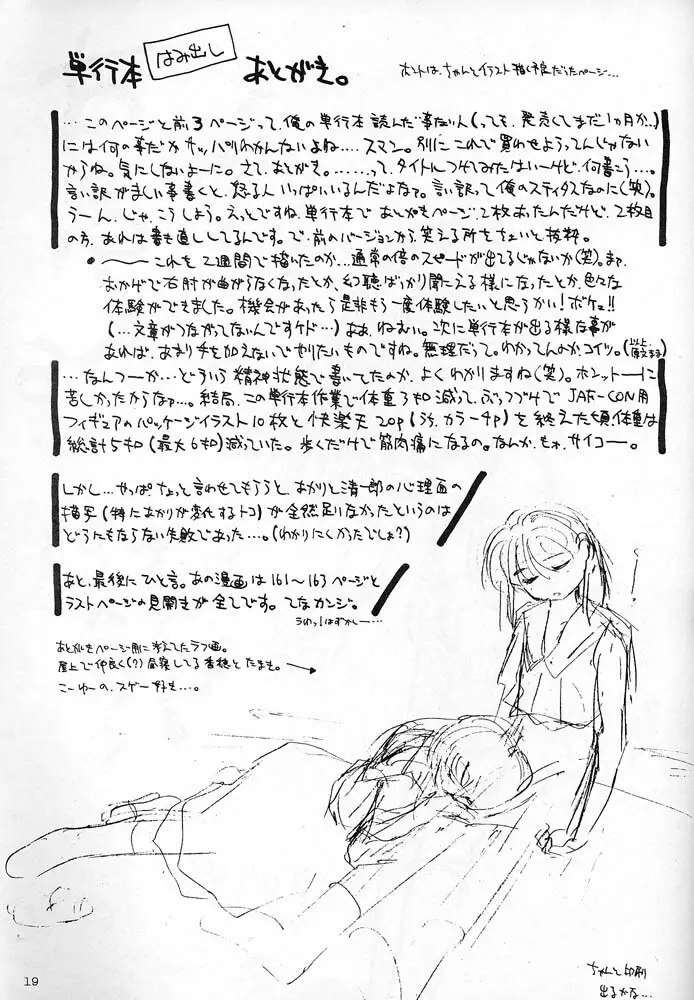 単行本 はみ出し あとがき。
ホントは、ちゃんとイラスト描く予定だったページ…
…このページと前3ページって、俺の単行本読んだ事ない人(っても、発売してまだ1ヵ月か。)
には何の事だかサッパリわかんないよね…。スマン。別にこれで買わせようってんじゃない
からね。気にしないよーに。さて、あとがき。………って、タイトルつけてみたはいーけど、何書こう…。
言い訳がましい事書くと、怒る人いっぱいいるんだよなァ。言い訳って俺のスティタスなのに(笑)。
うーん、じゃ、こうしよう。えっとですね、単行本であとがきページ、2枚あったんだけど、2枚目
の方、あれは書き直ししてるんです。で、前のバージョンから、笑える所をちょいと抜粋。
●〜これを2週間で描いたのか…通常の倍のスピードが出てるじゃないか(笑)。まァ、
おかげで右肘が曲がらなくなったとか、幻聴ばっかり聞こえる様になったとか、色々な
体験ができました。機会があったら是非もう一度体験したいと思うかい!ボケェ!!
(…文章がつながってないんですケド…)ああ、ねむい。次に単行本が出る様な事が
あれば、あまり手を加えないでやりたいものですね。無理だって。わかってんのかコイツ。(原文まま)
…なんつーか…どういう精神状態で書いてたのか、よくわかりますね(笑)。ホンットーに
苦しかったからなァ…。結局、この単行本作業で体重3キロ減って、ぶっつづけでJAF-CON用
フィギュアのパッケージイラスト10枚と快楽天20p(うち、カラー4p)を終えた頃、体重は
総計5キロ(最大6キロ)減っていた。歩くだけで筋肉痛になるの。なんか、もォ、サイコー。
しかし…やっぱ、ちょっと言わせてもらうと、あかりと清一郎の心理面の
描写(特にあかりが変化するトコ)が全然足りなかったというのは
どうにもならない失敗であった…。(わかりにくかったでしょ?)
あと、最後にひと言。あの漫画は161〜163ページと
ラストページの見開きが全てです。てなカンジ。
うわっ!はずかしー…
あとがきページ用に考えてたラフ画。
屋上で仲良く(?)昼寝してる香穂とたまき。
こーゆーの、スゲー好き…。
ちゃんと印刷
出るかな…
19